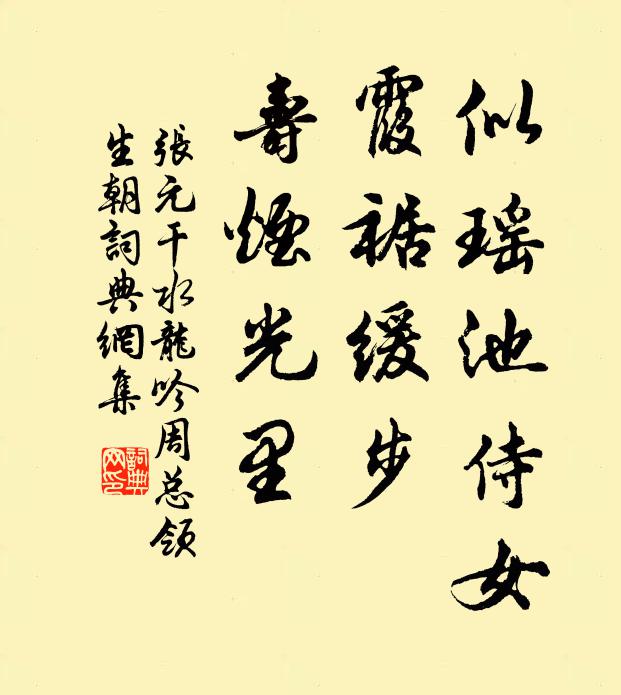 似瑶池侍女
霞裾缓步
壽煙光里
張元干水龍吟周总领
生朝詞典網集
詞典網印